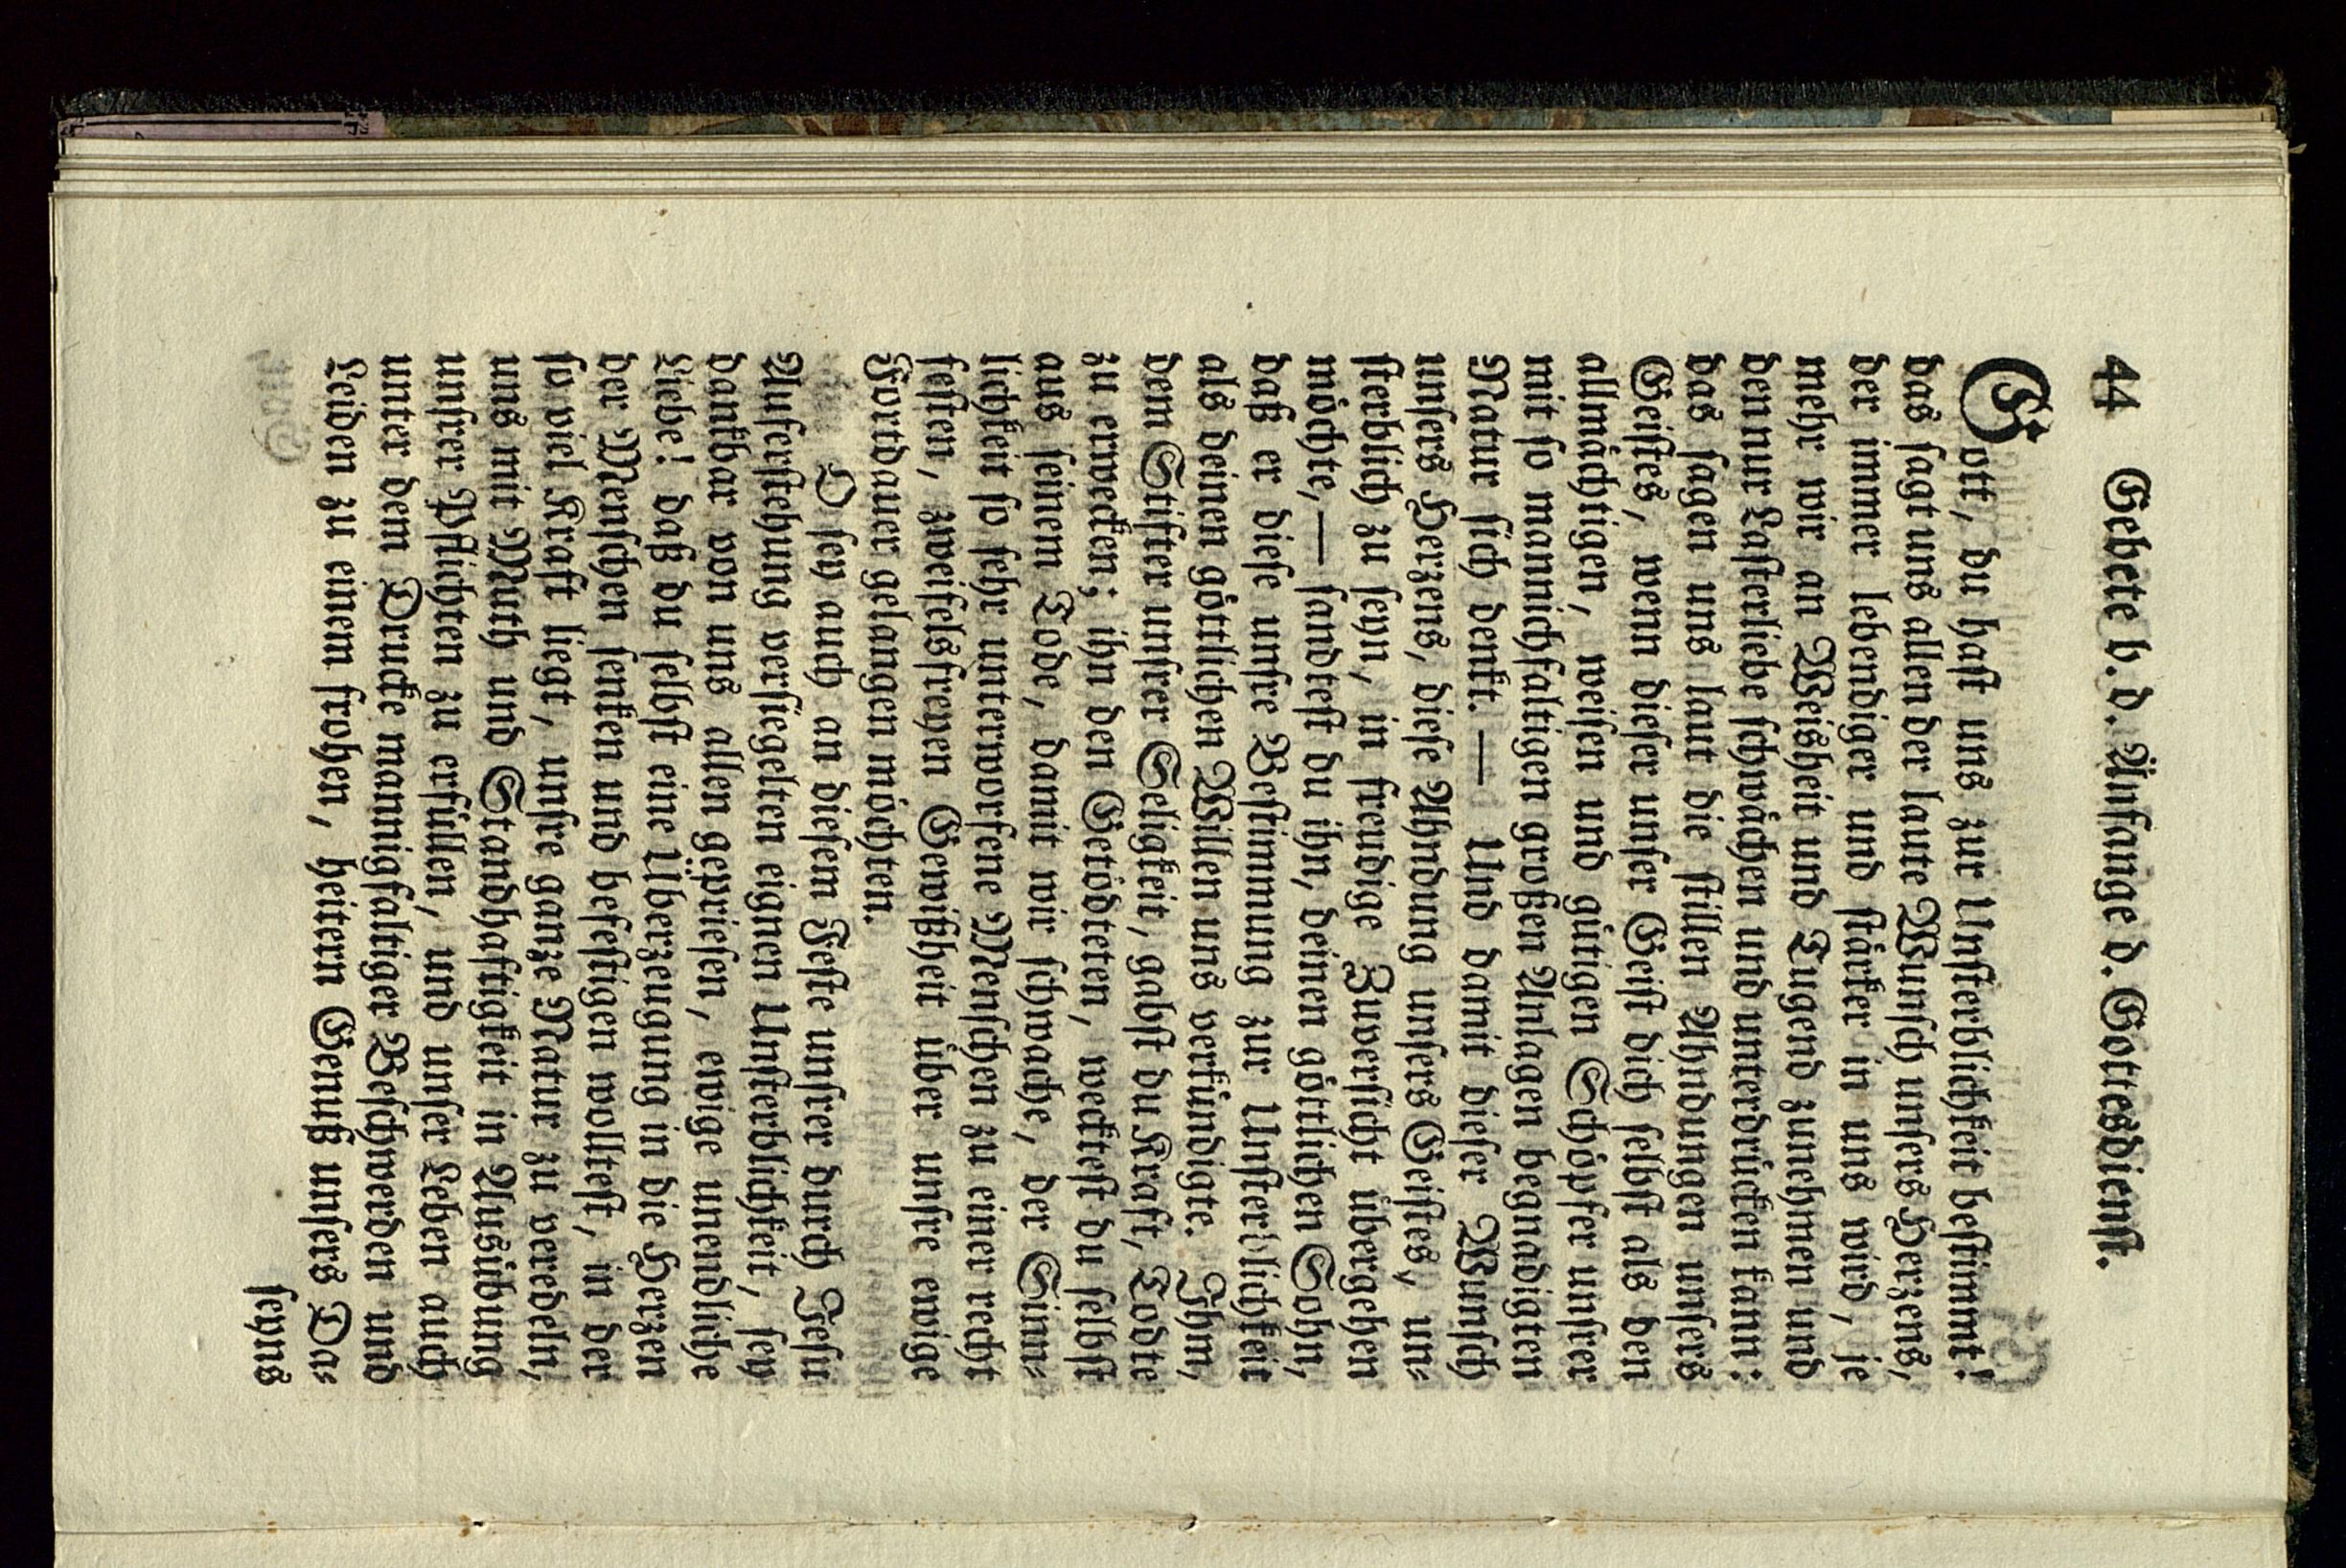 44 Gebete b. d. Anfange d. Gottesdienst.
Gott, du haſt uns zur Unſterblichkeit beſtimmt!
das ſagt uns allen der laute Wunſch unſers Herzens,
der immer lebendiger und ſtärker in uns wird, je
mehr wir an Weisheit und Tugend zunehmen und
den nur Laſterliebe ſchwächen und unterdrücken kann:
das ſagen uns laut die ſtillen Ahndungen unſers
Geiſtes, wenn dieſer unſer Geiſt dich ſelbſt als den
allmächtigen, weiſen und gütigen Schöpfer unſrer
mit ſo mannichfaltigen großen Anlagen begnadigten
Natur ſich denkt. — Und damit dieſer Wunſch
unſers Herzens, dieſe Ahndung unſers Geiſtes, un⸗
ſterblich zu ſeyn, in freudige Zuverſicht übergehen
möchte, — ſandteſt du ihn, deinen göttlichen Sohn,
daß er dieſe unſre Beſtimmung zur Unſterblichkeit
als deinen göttlichen Willen uns verkündigte. Ihm,
dem Stifter unſrer Seligkeit, gabſt du Kraft, Todte
zu erwecken; ihn den Getödteten, weckteſt du ſelbſt
aus ſeinem Tode, damit wir ſchwache, der Sinn⸗
lichkeit ſo ſehr unterworfene Menſchen zu einer recht
feſten, zweifelsfreyen Gewißheit über unſre ewige
Fortdauer gelangen möchten.
O ſey auch an dieſem Feſte unſrer durch Jeſu
Auferſtehung verſiegelten eignen Unſterblichkeit, ſey
dankbar von uns allen geprieſen, ewige unendliche
Liebe! daß du ſelbſt eine Überzeugung in die Herzen
der Menſchen ſenken und befeſtigen wollteſt, in der
ſo viel Kraft liegt, unſre ganze Natur zu veredeln,
uns mit Muth und Standhaftigkeit in Ausübung
unſrer Pflichten zu erfüllen, und unſer Leben auch
unter dem Drucke mannigfaltiger Beſchwerden und
Leiden zu einem frohen, heitern Genuß unſers Da⸗
ſeyns